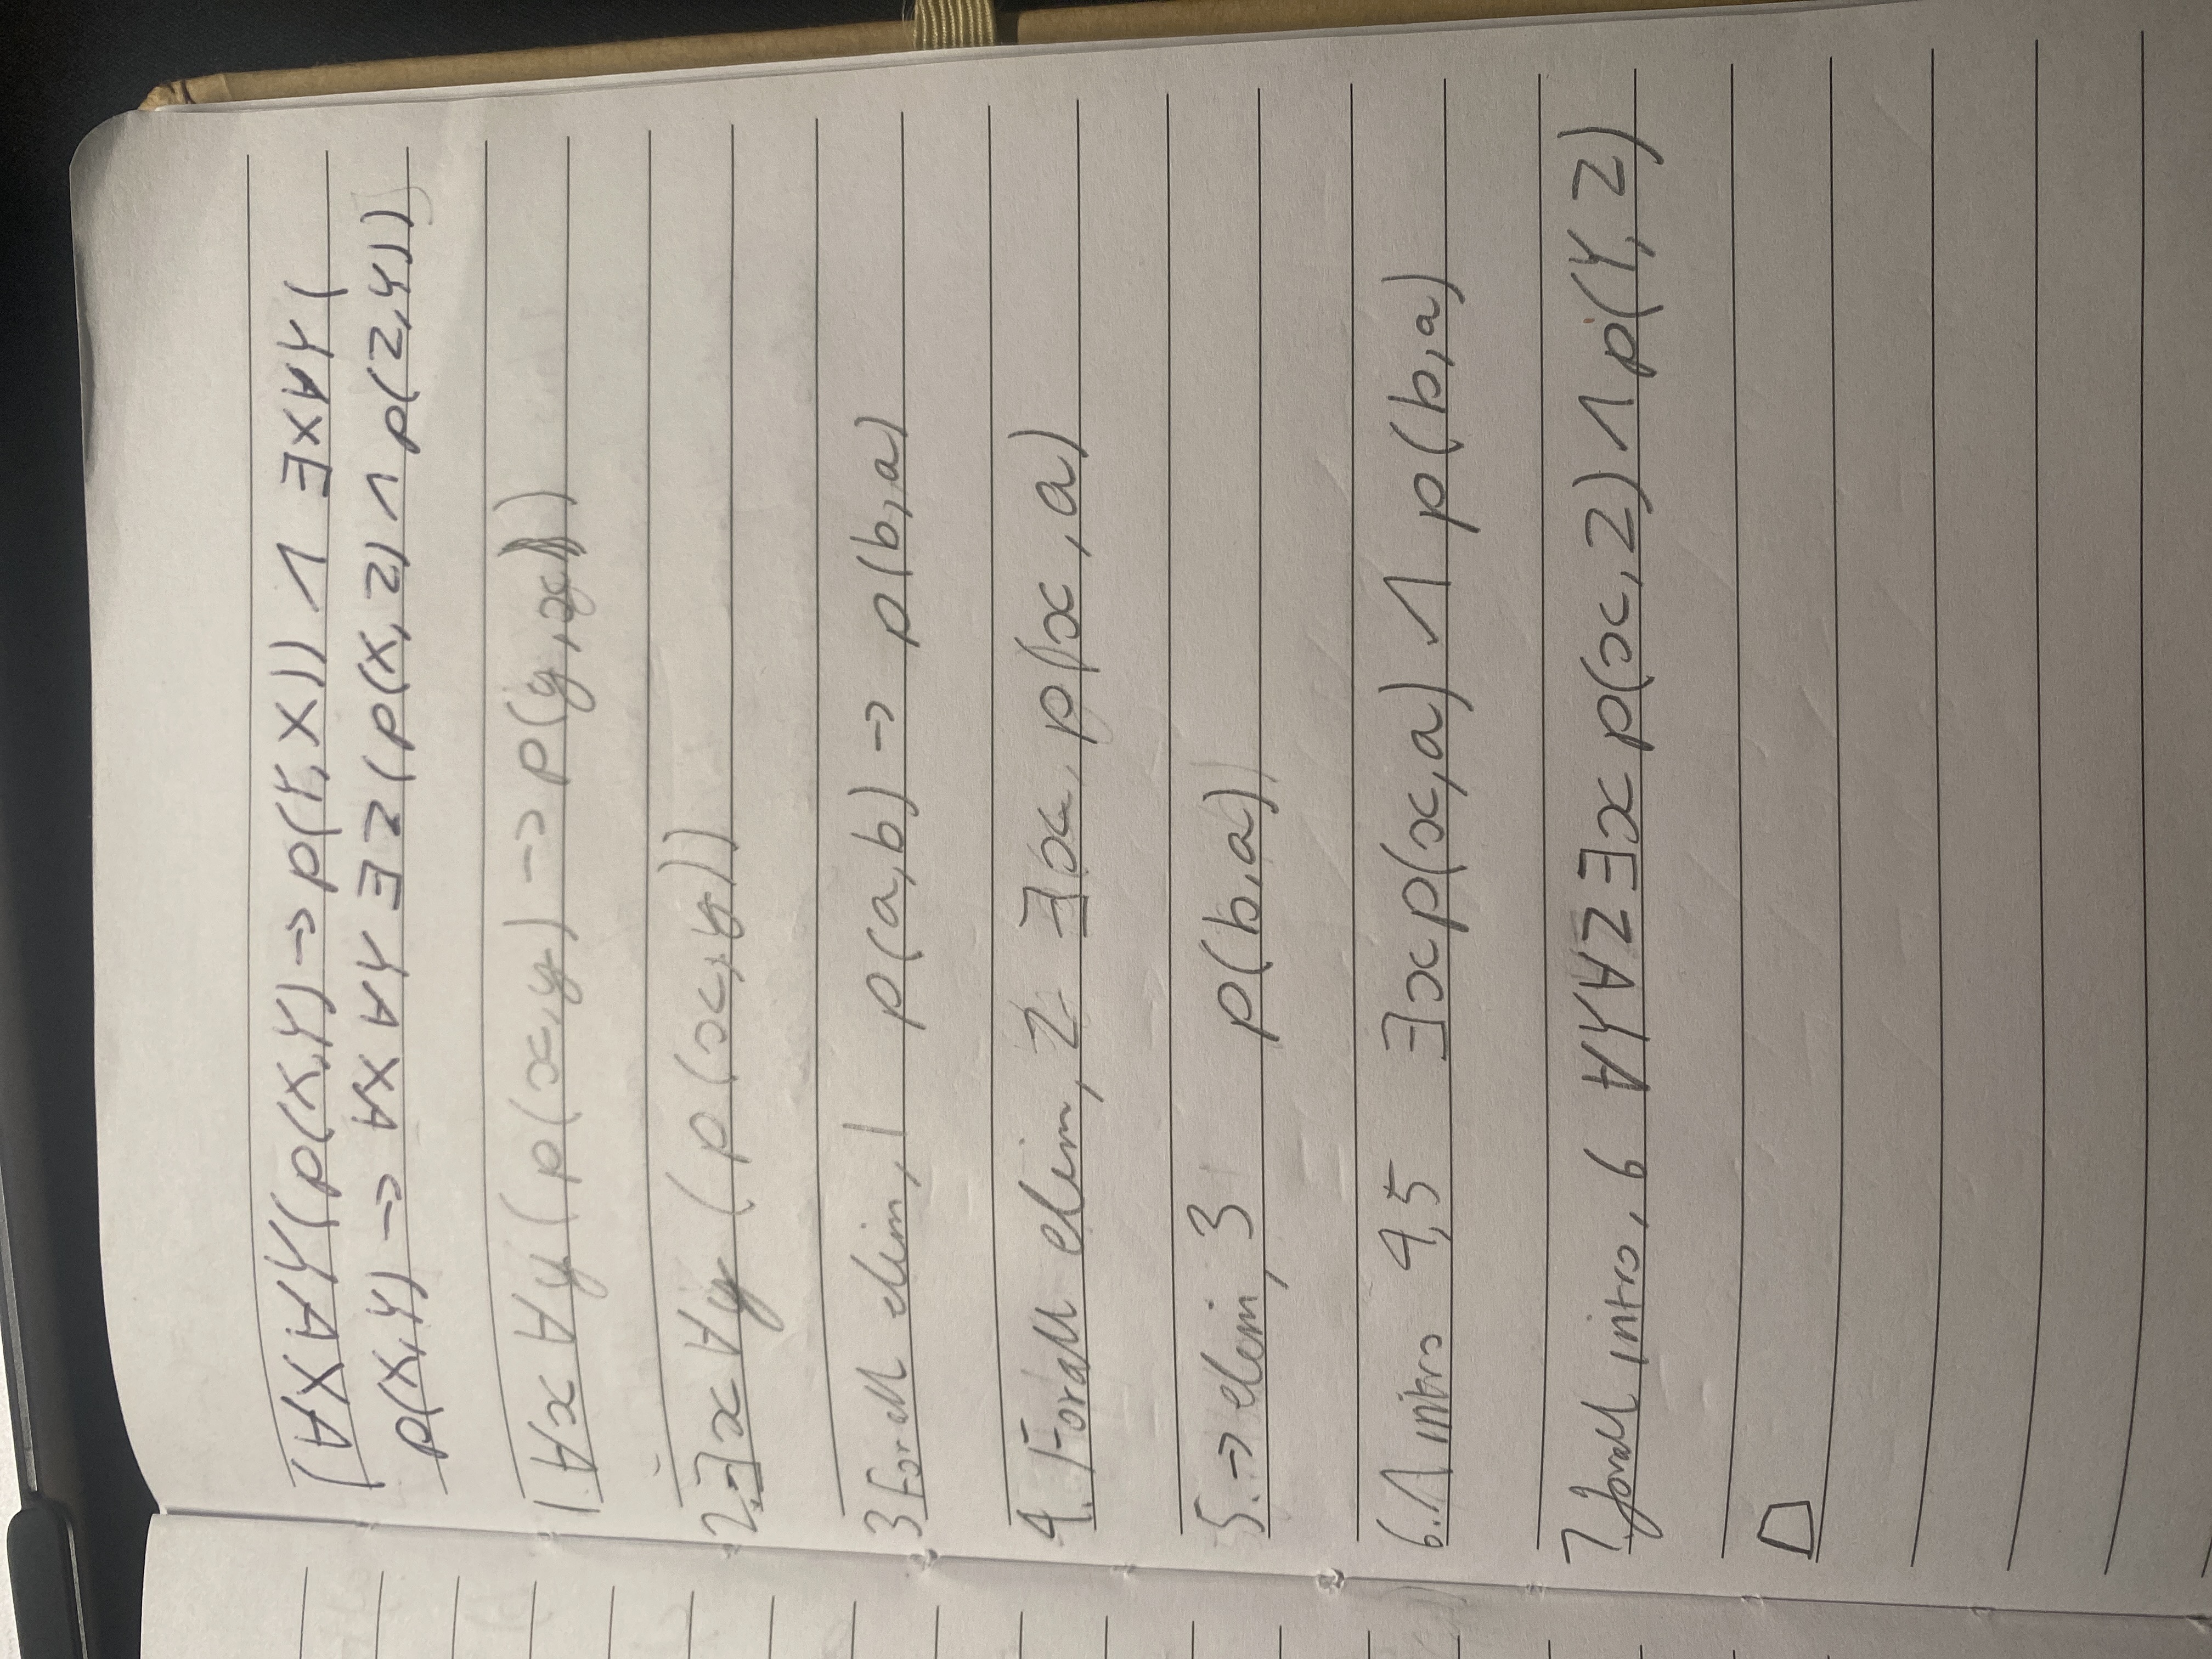 (∀X∀Y(p(X,Y)→p(Y,X)) ∧ ∃X∀Y(
p(X,Y)→ ∀X∀Y∃Z(p(X,Z)∧p(Z,Y))
1. ∀x∀y(p(x,y)→p(y,x))
2. ∃x∀y (p(x,y))
3 Forall elim, 1 p(a,b) → p(b,a)
4. Forall elim, 2 ∃x p(x,a)
5. → elim, 3 p(b,a)
6. ∧ intro 4,5 ∃x p(x,a) ∧ p(b,a)
7. forall intro, 6 ∀Y∀Z∃x p(x,Z) ∧ p(Y,Z)
□